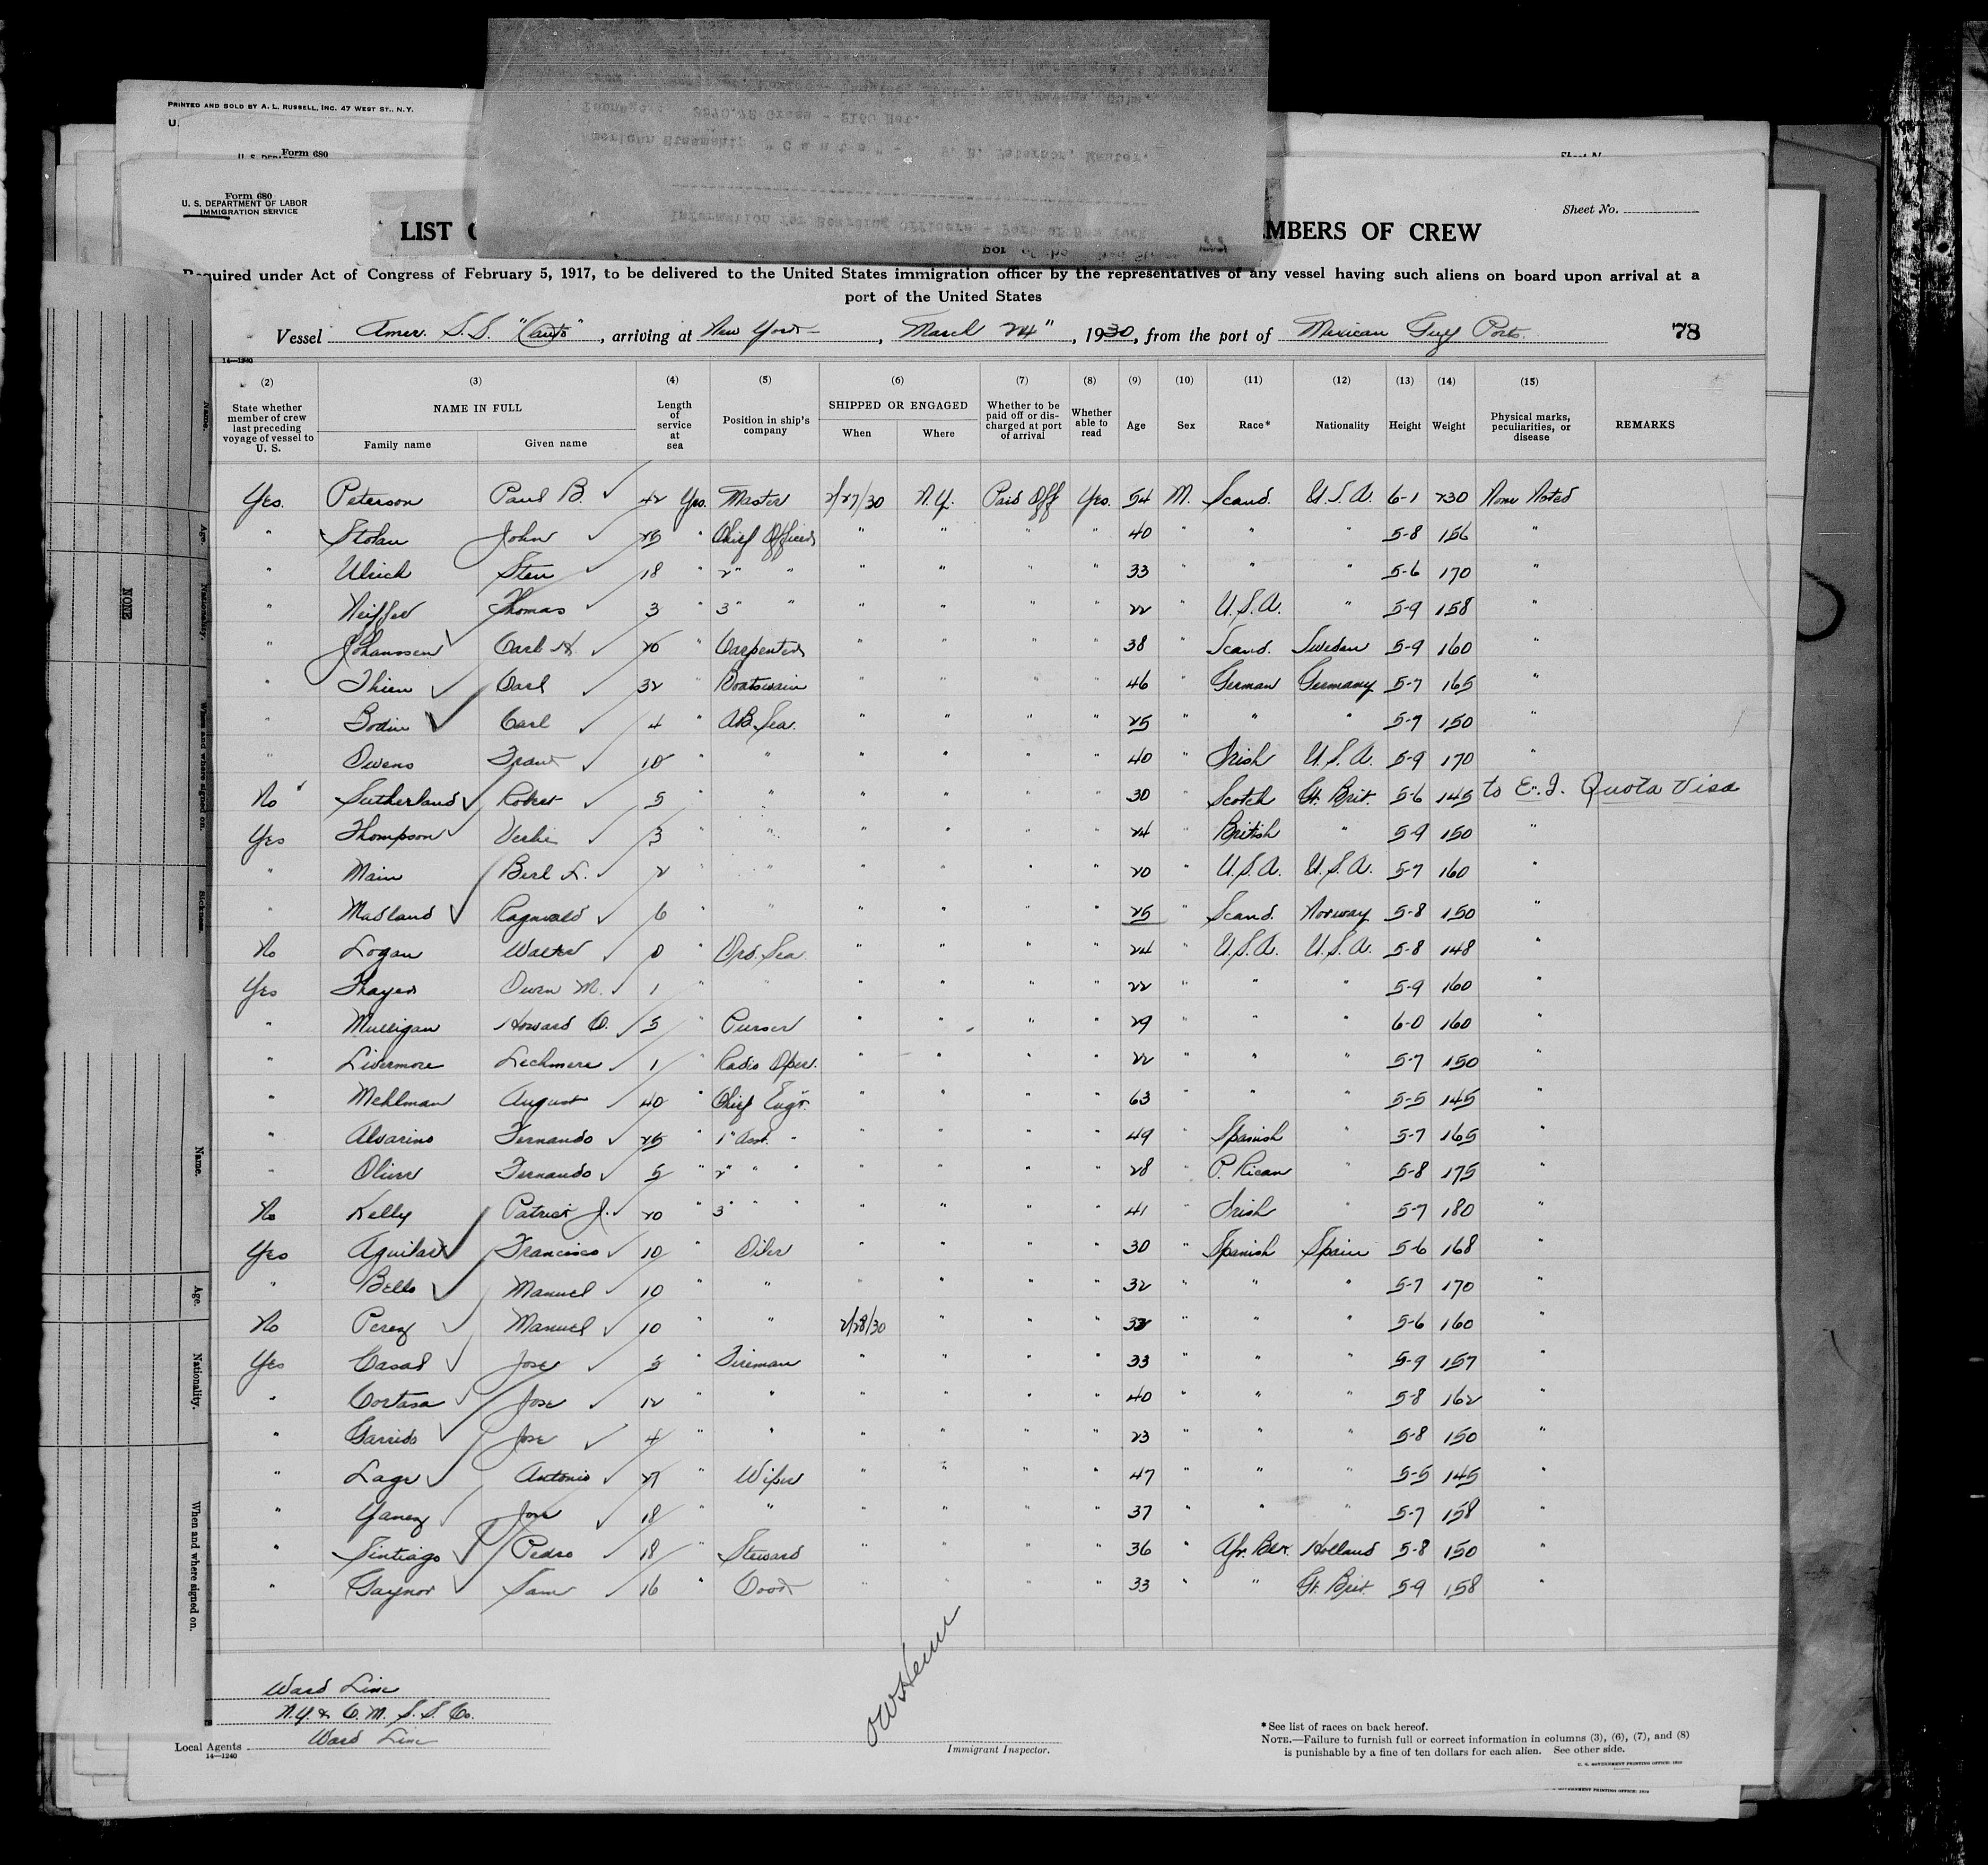 PRINTED AND SOLD BY A. L. RUSSELL, INC. 47 WEST ST., N.Y.
U.
Form 680
Form 680
U. S. DEPARTMENT OF LABOR
IMMIGRATION SERVICE
Sheet No.
Information for Boarding Officers - Port of New York
American Steamship "Cauto" - P. B. Peterson, Master.
LIST
MBERS OF CREW
Required under Act of Congress of February 5, 1917, to be delivered to the United States immigration officer by the representatives of any vessel having such aliens on board upon arrival at a
port of the United States
Vessel Amer. S.S. "Cauto", arriving at New York, March 24", 1930, from the port of Mexican Gulf Ports. 78
14—1240
(2) (3) (4) (5) (6) (7) (8) (9) (10) (11) (12) (13) (14) (15)
State whether member of crew last preceding voyage of vessel to U. S. NAME IN FULL Family name Given name Length of service at sea Position in ship's company SHIPPED OR ENGAGED When Where Whether to be paid off or discharged at port of arrival Whether able to read Age Sex Race* Nationality Height Weight Physical marks, peculiarities, or disease REMARKS
Yes. Peterson Paul B. 42 Yes. Master 2/27/30 N.Y. Paid Off Yes. 54 M. Scand. U.S.A. 6-1 230 None Noted
" Stolan John 25 " Chief Officer " " " " 40 " " " 5-8 156 "
" Ulrich Sten 18 " 2" " " " " " 33 " " " 5-6 170 "
" Neiffer Thomas 3 " 3" " " " " " 22 " U.S.A. " 5-9 158 "
" Johanssen Carl H. 20 " Carpenter " " " " 38 " Scand. Sweden 5-9 160 "
" Thien Carl 32 " Boatswain " " " " 46 " German Germany 5-7 165 "
" Bodin Carl 4 " A.B. Sea. " " " " 25 " " " 5-7 150 "
" Owens Frank 10 " " " " " " 40 " Irish U.S.A. 5-9 170 "
No Sutherland Robert 5 " " " " " " 30 " Scotch Gt. Brit. 5-6 145 to E.I. Quota Visa
Yes Thompson 3 " " " " " " 24 " British " 5-9 150 "
" Main Berl L. 2 " " " " " " 20 " U.S.A. U.S.A. 5-7 160 "
" Madland Ragnvald 6 " " " " " " 25 " Scand. Norway 5-8 150 "
No Logan Walter 0 " Ord. Sea. " " " " 24 " U.S.A. U.S.A. 5-8 148 "
Yes Thayer Owen M. 1 " " " " " " 22 " " " 5-9 160 "
" Mulligan Howard C. 5 " Purser " " " " 29 " " " 6-0 160 "
" Livermore Lechmere 1 " Radio Oper. " " " " 22 " " " 5-7 150 "
" Mehlman August 40 " Chief Engr. " " " " 63 " " " 5-5 145 "
" Alvarino Fernando 25 " 1" Asst. " " " " " 49 " Spanish " 5-7 165 "
" Oliver Fernando 5 " 2" " " " " " " 28 " P. Rican " 5-8 175 "
No Kelly Patrick J. 20 " 3" " " " " " " 41 " Irish " 5-7 180 "
Yes Aguilar Francisco 10 " Oiler " " " " 30 " Spanish Spain 5-6 168 "
" Bello Manuel 10 " " " " " " 32 " " " 5-7 170 "
No Perez Manuel 10 " " 2/28/30 " " " 32 " " " 5-6 160 "
Yes Casal Jose 5 " Fireman " " " " 33 " " " 5-9 157 "
" Cortasa Jose 12 " " " " " " 40 " " " 5-8 162 "
" Garrido Jose 4 " " " " " " 23 " " " 5-8 150 "
" Lage Antonio 27 " Wiper " " " " 47 " " " 5-5 145 "
" Yanez Jose 18 " " " " " " 37 " " " 5-7 158 "
" Sintiago Pedro 18 " Steward " " " " 36 " Afr. Blk. Holland 5-8 150 "
" Gaynor Sam 16 " Cook " " " " 33 " " Gt. Brit. 5-9 158 "
Ward Line
N.Y. & C.M. S.S. Co.
Local Agents Ward Line
14—1240
Immigrant Inspector.
*See list of races on back hereof.
NOTE.—Failure to furnish full or correct information in columns (3), (6), (7), and (8)
is punishable by a fine of ten dollars for each alien. See other side.
Name.
Age.
Nationality.
NONE
When and where signed on.
Sickness.
Name.
Age.
Nationality.
When and where signed on.